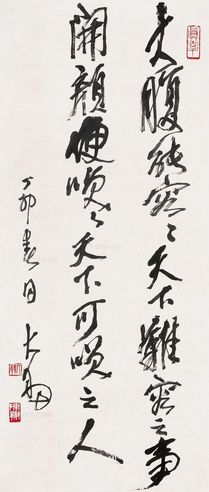 大腹能容々天下難容之事
開顏便笑々天下可笑之人
丁卯春日大羽